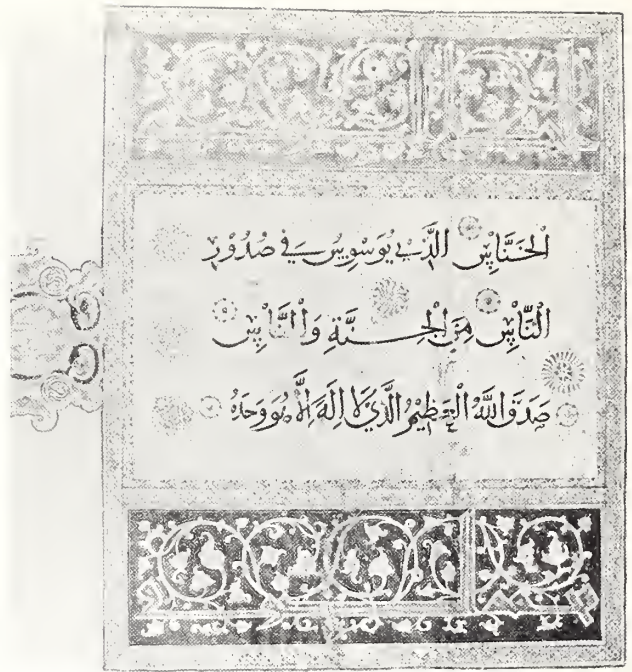 الْخَنَّاسِ الَّذِي يُوَسْوِسُ فِي صُدُورِ
النَّاسِ مِنَ الْجِنَّةِ وَالنَّاسِ
صَدَقَ اللَّهُ الْعَظِيمُ الَّذِي لَا إِلَهَ إِلَّا هُوَ وَحْدَهُ